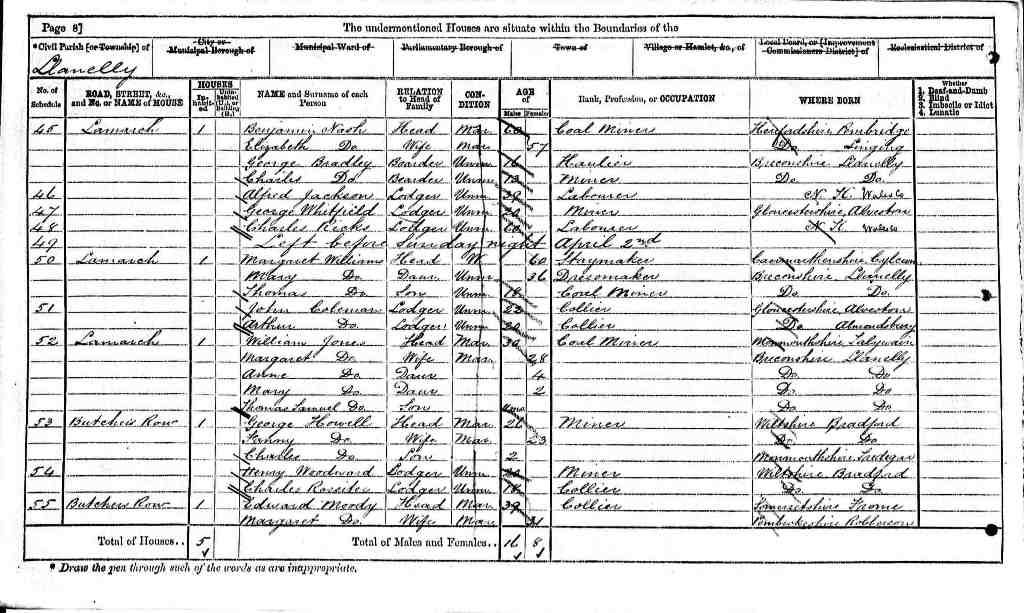 Page 8] The undermentioned Houses are situate within the Boundaries of the
*Civil Parish [or Township] of City or Municipal Borough of Municipal Ward of Parliamentary Borough of Town of Village or Hamlet, &c., of Local Board, or [Improvement Commissioners District] of Ecclesiastical District of
Llanelly
No. of Schedule ROAD, STREET, &c., and No. or NAME of HOUSE HOUSES Inhabited Uninhabited (U.), or Building (B.) NAME and Surname of each Person RELATION to Head of Family CONDITION AGE of Males Females Rank, Profession, or OCCUPATION WHERE BORN Whether 1. Deaf-and-Dumb 2. Blind 3. Imbecile or Idiot 4. Lunatic
45 Lamarch 1 Benjamin Nash Head Mar 60 Coal Miner Herefordshire Pembridge
Elizabeth Do Wife Mar 57 Do
George Bradley Boarder Unm 16 Haulier Breconshire Llanelly
Charles Do Boarder Unm 13 Miner Do Do
46 Alfred Jackson Lodger Unm 39 Labourer N. K.
47 George Whitfield Lodger Unm 20 Miner Gloucestershire Alveston
48 Charles Ricks Lodger Unm 60 Labourer N K
49 Left before Sunday night April 2nd
50 Lamarch 1 Margaret Williams Head W 60 Staymaker Caermarthenshire
Mary Do Daur Unm 36 Dressmaker Breconshire Llanelly
Thomas Do Son Unm 19 Coal Miner Do Do
51 John Coleman Lodger Unm 22 Collier Gloucestershire Alveston
Arthur Do Lodger Unm 20 Collier Do Almondsbury
52 Lamarch 1 William Jones Head Mar 30 Coal Miner Monmouthshire Talywain
Margaret Do Wife Mar 28 Breconshire Llanelly
Anne Do Daur 4 Do Do
Mary Do Daur 2 Do Do
Thomas Samuel Do Son Do Do
53 Butchers Row 1 George Howell Head Mar 26 Miner Wiltshire Bradford
Fanny Do Wife Mar 23 Do Do
Charles Do Son 2 Monmouthshire Tredegar
54 Henry Woodward Lodger Unm 20 Miner Wiltshire Bradford
Charles Rossiter Lodger Unm 18 Collier Do Do
55 Butchers Row 1 Edward Moody Head Mar 39 Collier Somersetshire Frome
Margaret Do Wife Mar 31 Pembrokeshire
Total of Houses.. 5 Total of Males and Females.. 16 8
* Draw the pen through such of the words as are inappropriate.